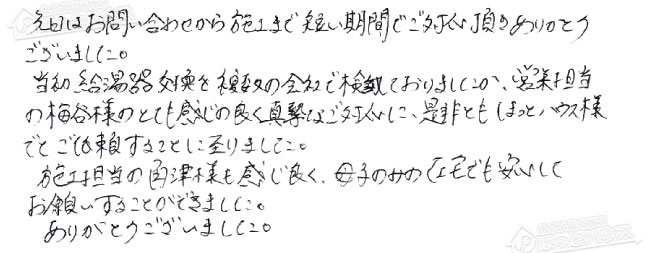 先日はお問い合わせから施工まで短い期間でご対応頂きありがとう
ございました。
当初給湯器交換を複数の会社で検討しておりましたが、営業担当
の梅谷様のとても感じの良く真摯なご対応に、是非ともほっとハウス様
でとご依頼することに至りました。
施工担当の角津様も感じ良く、母子のみの在宅でも安心して
お願いすることができました。
ありがとうございました。